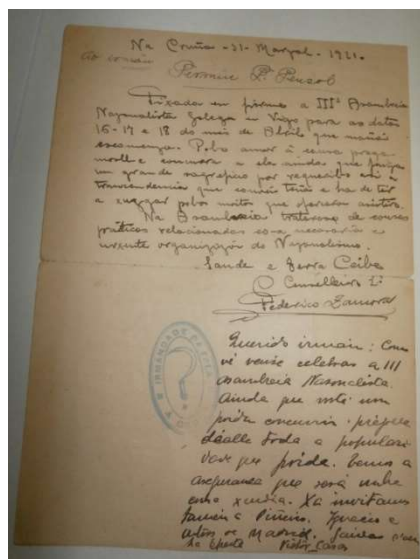 Na Cruña - 31 - Marzal - 1921.
Ao irmán
Fermin P. Penzol
Fixada en firme a IIIª Asambreia
Nazonalista Galega en Vigo para os datos
16-17 e 18 do mes de Abrile que mañán
escomenza. Pol-o amor á causa prega-
moslle concurra a ela ainda que
un grande sagrefizio por requerilo así a
trascendencia que coméo teña e ha de ter
a xuzgar polos moitos que
Na Asambreia trataráse de cousas
práticas relacionadas coa necesaria e
urxente organización do Nazonalismo.
Saude e Terra Ceibe
O Conselleiro 1º
Federico Zamora
IRMANDADE DA FALA
Querido irmán: Como
vé vaise celebrar a III
asambreia Nazonalista.
Ainda que voté non
poida concurrir
déalle toda a populari
dade que poida. Temos a
aseguranza que será unha
cousa xurdia. Xa invitamos
tamén a Piñeiro, Ignacio e
outros de Madrid. Saúdao
Victor Casas